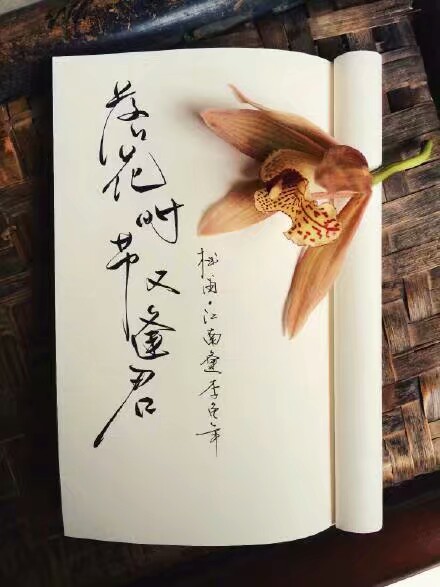 落花时节又逢君
杜甫·江南逢李龟年